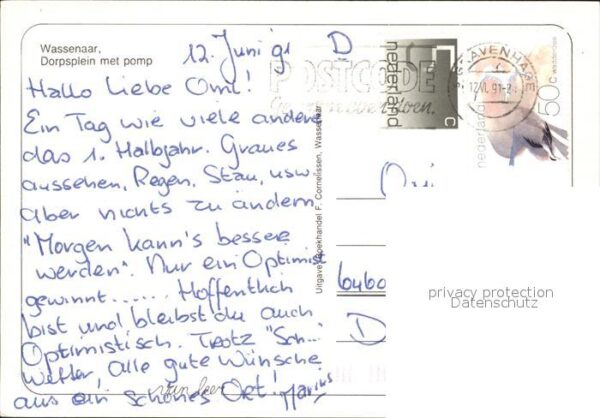 Wassenaar,
Dorpsplein met pomp
12. Juni 91
D
Hallo Liebe Omi!
Ein Tag wie viele andere
das 1. Halbjahr. Graues
aussehen, Regen, Stau, usw
aber nichts zu ändern.
"Morgen kann's bessere
werden". Nur ein Optimist
gewinnt...... Hoffentlich
bist und bleibst du auch
Optimistisch. Trotz "Sch..."
Wetter alle gute Wünsche
aus ein schönes Ort! Marius
van leer
Uitgave Boekhandel F. Cornelissen, Wassenaar
POSTCODE
nederland
c
'S-GRAVENHAGE
12.VI.91
50 c
nederland
6460
D
privacy protection
Datenschutz